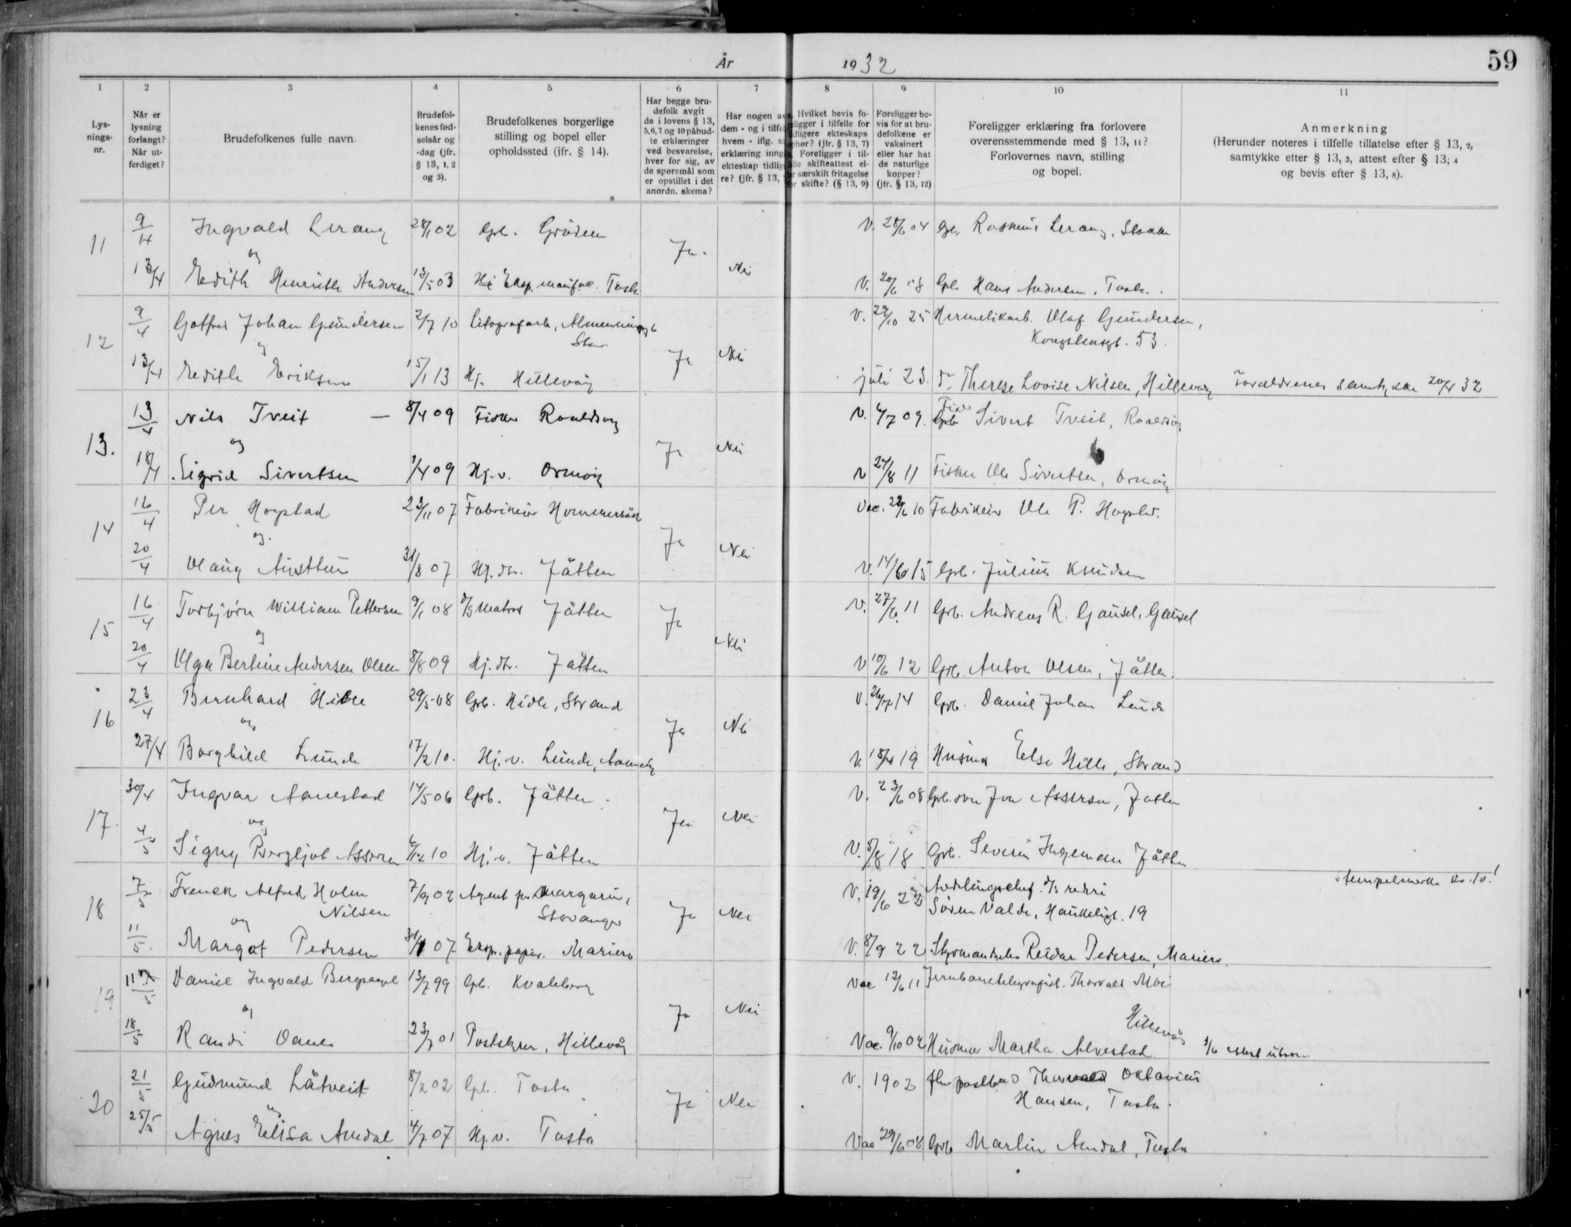 År 1932
59
1 2 3 4 5 6 7 8 9 10 11
Lys-
nings-
nr.
Når er
lysning
forlangt?
Når ut-
ferdiget?
Brudefolkenes fulle navn.
Brudefol-
kenes fød-
selsår og
-dag (jfr.
§ 13, 1, 2
og 3).
Brudefolkenes borgerlige
stilling og bopel eller
opholdssted (jfr. § 14).
Har begge bru-
defolk avgit
de i lovens § 13,
5,6,7 og 10 påbud-
te erklæringer
ved besvarelse,
hver for sig, av
de spørsmål som
er opstillet i det
anordn. skema?
Har nogen av
dem - og i tilfe
hvem - iflg. s
erklæring inng
ekteskap tidlig
re? (jfr. § 13,
Hvilket bevis fo-
religger i tilfelle for
tidligere ekteskaps
opher? (jfr. § 13, 7)
Foreligger i til-
felle skifteattest el-
er særskilt fritagelse
for skifte? (§ 13, 9)
Foreligger be-
vis for at bru-
defolkene er
vaksinert
eller har hat
de naturlige
kopper?
(jfr. § 13, 12)
Foreligger erklæring fra forlovere
overensstemmende med § 13, 11?
Forlovernes navn, stilling
og bopel.
Anmerkning
(Herunder noteres i tilfelle tillatelse efter § 13, 2,
samtykke efter § 13, 3, attest efter § 13, 4
og bevis efter § 13, 8).
11 9/4 Ingvald Lerang 28/1 02 Gbr. Grødem Ja. Nei V. 04 Rasmus Lerang,
og
13/4 Edith Henriette Andersen 13/5 03 Tasta V. 20/6 18 Gbr. Hans Andersen, Tasta.
12 9/4 Gotfred Johan Gundersen 2/7 10 Litografarb., Ja Nei V. 29/10 25 Hermetikarb. Olaf Gundersen,
og Stav. Kongstensgt. 53.
13/4 Edith Eriksen 15/1 13 Hj. Hillevåg juli 23. Therese Lovise Nilsen, Hillevåg Foreldrenes samtykke 20/4 32
13. 13/4 Nils Tveit — 8/4 09 Fisker Roaldsøy Ja Nei V. 4/7 09. Sivert Tveit, Roaldsøy
og
18/4 Sigrid Sivertsen 1/4 09 Hj.v. Ormøy V 24/8 11 Fisker Ole Sivertsen, Ormøy
14 16/4 Per Hogstad 23/11 07 Fabrikeier Hommersåk Ja Nei Vac. 22/6 10 Fabrikeier Ole P. Hogstad.
og.
20/4 Olaug Austbø 31/8 07 Hj.dtr. Jåtten V. 14/6 15 Gbr. Julius Knudsen
15 16/4 Torbjørn William Pettersen 9/1 08 Matros Jåtten Ja Nei V. 27/6 11 Gbr. Andreas R. Gausel, Gausel
og
20/4 Olga Bertine Andersen Olsen 8/8 09 Hj.dtr. Jåtten V 10/6 12 Gbr. Anton Olsen, Jåtten.
16 23/4 Bernhard Hidle 29/5 08 Gbr. Hidle, Strand Ja Nei V. 14 Gbr. Daniel Johan Lunde
og
27/4 Borghild Lunde 17/2 10. Hj.v. Lunde, V. 18/4 19 Husmor Else Hidle, Strand
17. 30/4 Ingvar Aanestad 14/5 06 Gbr. Jåtten. Ja Nei V. 23/6 08 Assersen, Jåtten
og
4/5 Signy Bergljot Assersen 10 Hj.v. Jåtten V. 5/8 18 Gbr. Severin Ingeman Jåtten
18 7/5 Frenck Alfred Holm 7/9 02 Agent Margarin, Ja Nei V. 19/6 22 Avdelingschef
og Nilsen Stavanger Sören Valde, Haukeligt. 19
Stempelmerke kr. 10.!
11/5. Margot Pedersen 07 Eksp. papir. Mariero V. 8/9 22 Reidar Pedersen, Mariero.
19 11/5 Daniel Ingvald Bergsagel 13/7 99 Gbr. Kvaleberg Ja Nei Vac 12/6 11 Jernbanetelegrafist. Thorvald Moi
og Hillevåg
18/5 Randi Oanes 23/7 01 Hillevåg Vac. 9/10 02 Husmor Martha Alvestad
20 21/5 Gudmund Låtveit 8/2 02 Gbr. Tasta Ja Nei V. 1902 Thorvald Oktavius
og Hansen, Tasta.
25/5 Agnes Elisa Amdal 4/7 07 Hj.v. Tasta Vac 29/6 08 Gbr Martin Amdal, Tasta